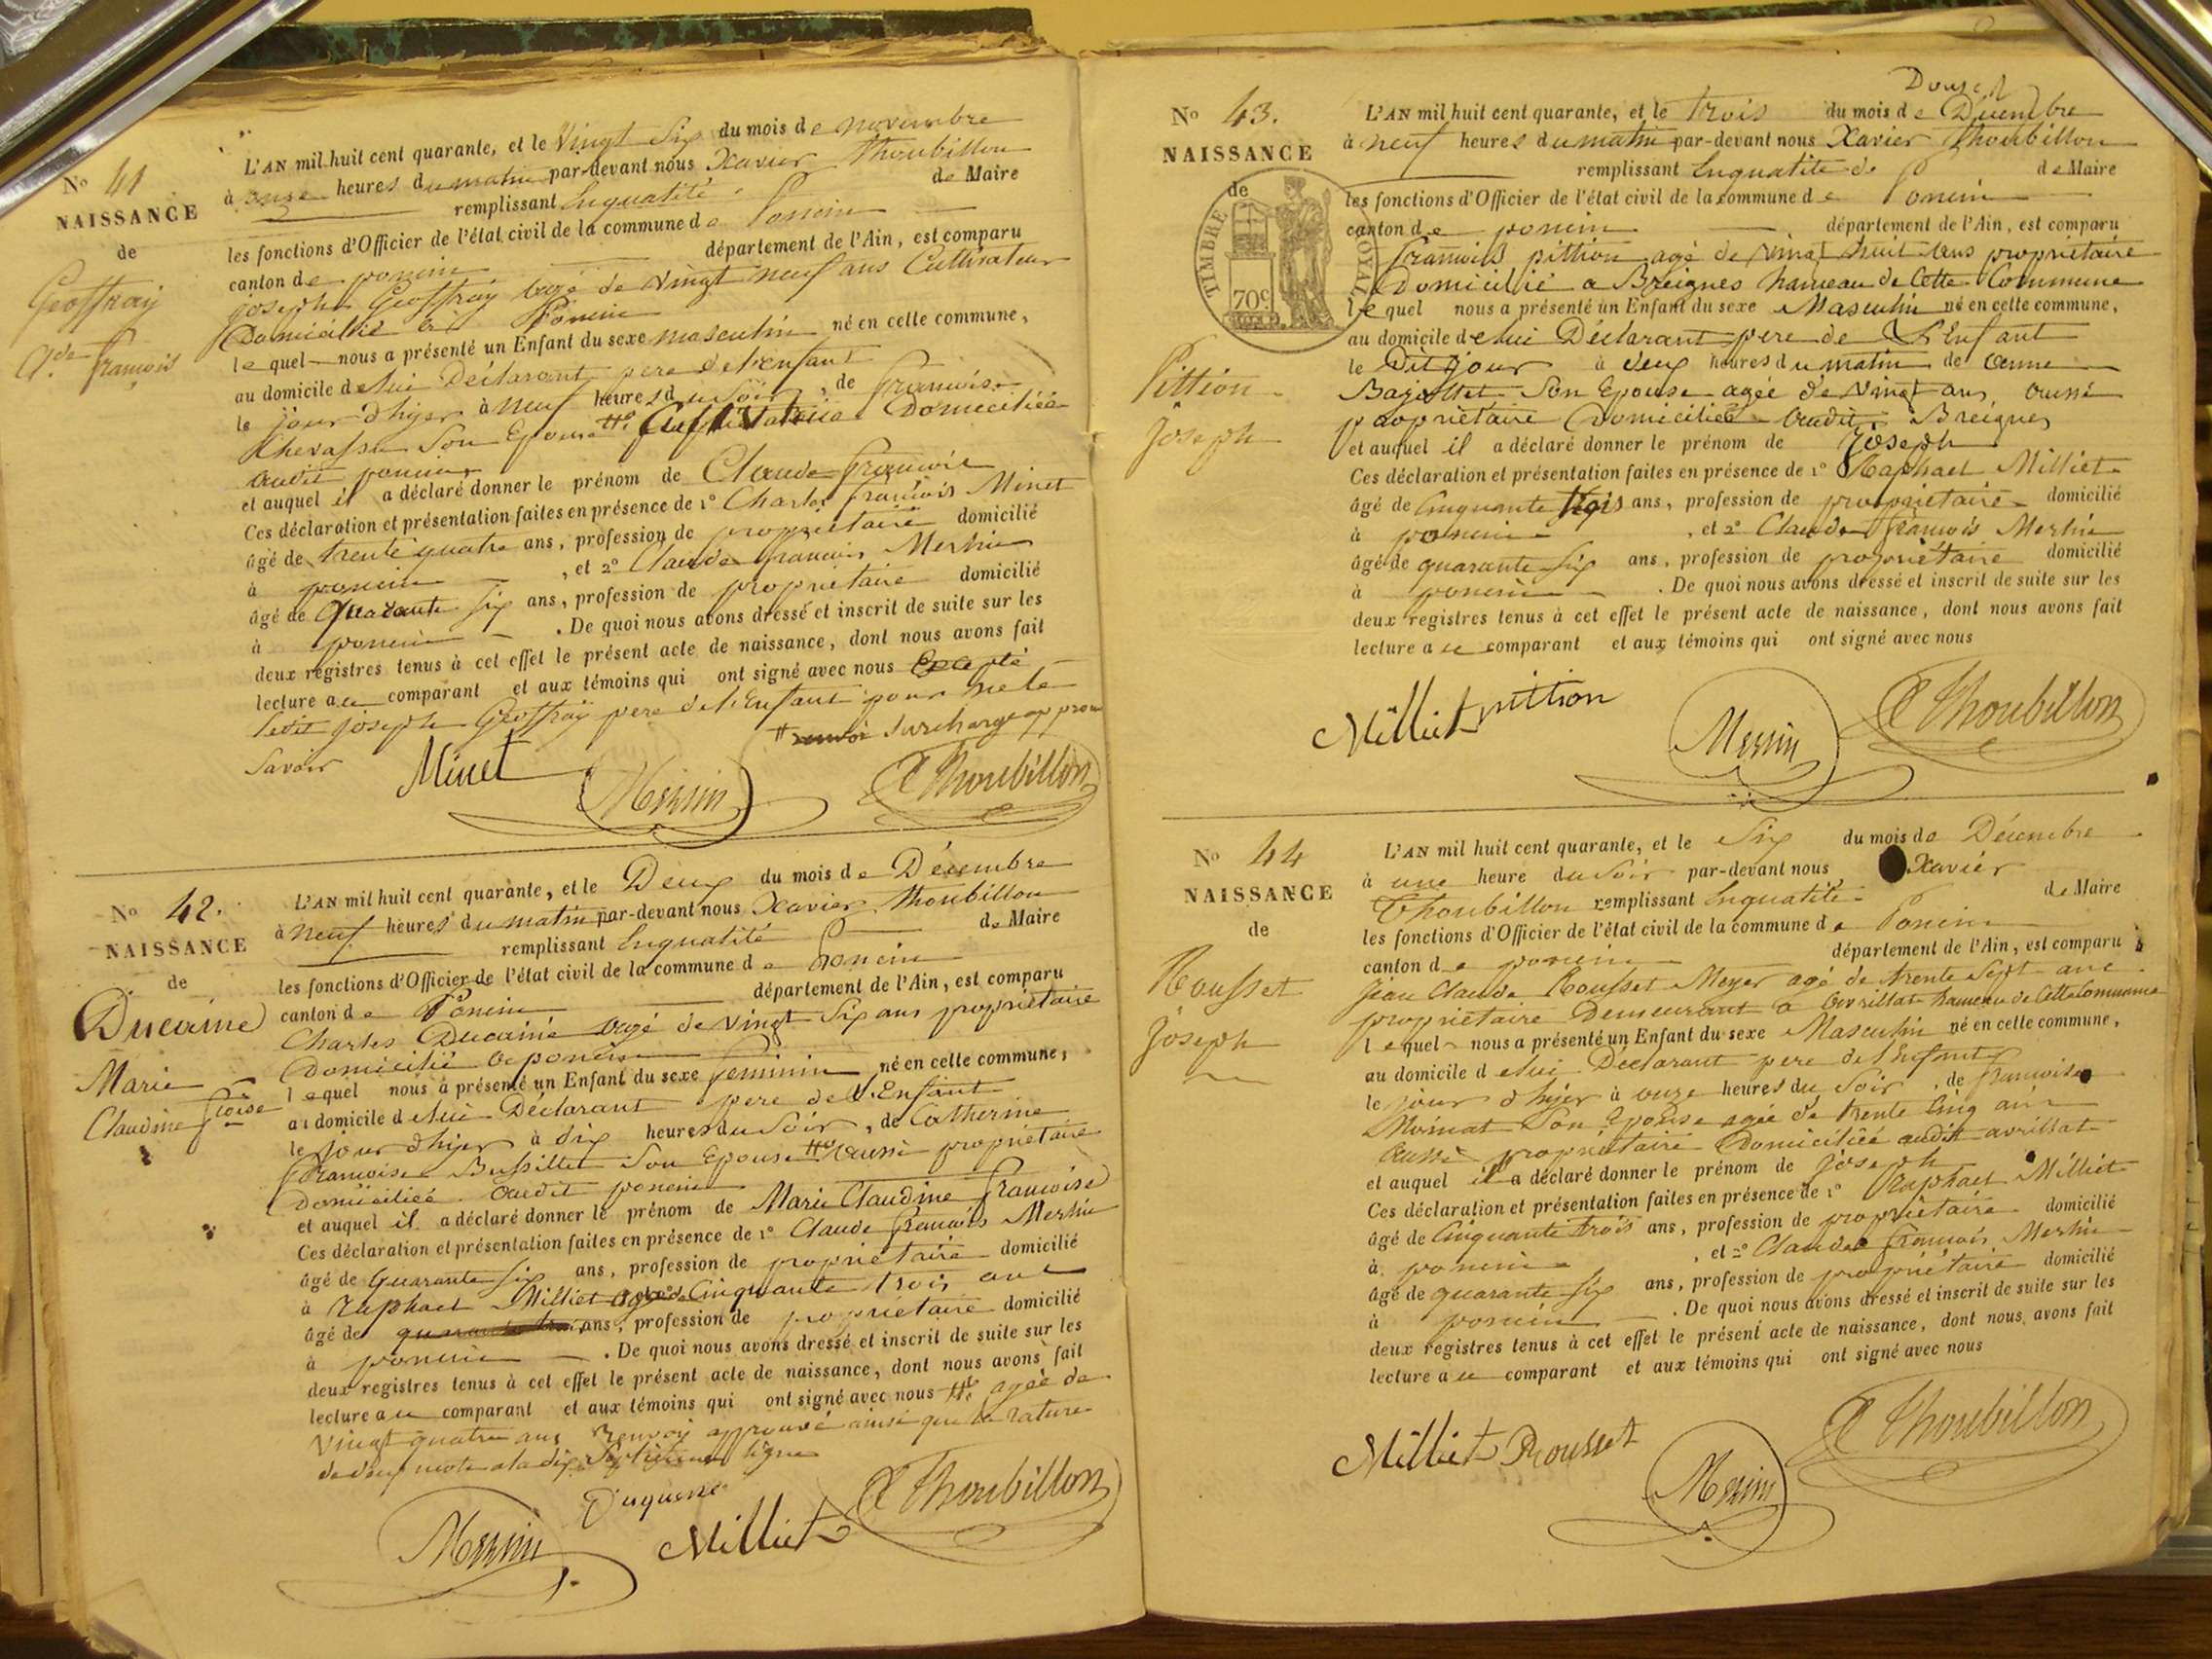 N° 41
NAISSANCE
de
Geoffray
Cde françois
L'AN mil huit cent quarante, et le Vingt Six du mois de novembre
à onze heures du matin par-devant nous Xavier Thoubillon
remplissant Enqualité de Maire
les fonctions d'Officier de l'état civil de la commune de Poncin
canton de poncin département de l'Ain, est comparu
joseph Geoffray agé de vingt neuf ans Cultivateur
Domicilié à Poncin
lequel nous a présenté un Enfant du sexe masculin né en cette commune,
au domicile de lui Déclarant pere de l'enfant
le jour d'hyer à neuf heures du Soir, de françoise
Chevassu Son Epouse Domiciliée
audit poncin
et auquel il a déclaré donner le prénom de Claude françois
Ces déclaration et présentation faites en présence de 1° Charles françois Minet
âgé de trente quatre ans, profession de propriétaire domicilié
à poncin, et 2° Claude françois Merlin
âgé de Quarante six ans, profession de propriétaire domicilié
à poncin. De quoi nous avons dressé et inscrit de suite sur les
deux registres tenus à cet effet le présent acte de naissance, dont nous avons fait
lecture au comparant et aux témoins qui ont signé avec nous Excepté
ledit joseph Geoffray pere de l'Enfant pour ne le
savoir surcharge approu
Minet Merlin Thoubillon
N° 42.
NAISSANCE
de
Ducaine
Marie
Claudine fçoise
L'AN mil huit cent quarante, et le Deux du mois de Décembre
à neuf heures du matin par-devant nous Xavier Thoubillon
remplissant Enqualité de Maire
les fonctions d'Officier de l'état civil de la commune de Poncin
canton de Poncin département de l'Ain, est comparu
Charles Ducainé agé de vingt Six ans propriétaire
Domicilié à poncin
lequel nous a présenté un Enfant du sexe feminin né en cette commune,
au domicile de lui Déclarant pere de l'Enfant
le jour d'hyer à dix heures du Soir, de Catherine
françoise Bussillet Son Epouse aussi propriétaire
domiciliée audit poncin
et auquel il a déclaré donner le prénom de Marie Claudine françoise
Ces déclaration et présentation faites en présence de 1° Claude françois Merlin
âgé de Quarante six ans, profession de propriétaire domicilié
à raphael Milliet agé de Cinquante trois ans
âgé de ans, profession de propriétaire domicilié
à poncin. De quoi nous avons dressé et inscrit de suite sur les
deux registres tenus à cet effet le présent acte de naissance, dont nous avons fait
lecture au comparant et aux témoins qui ont signé avec nous agée de
Vingt quatre ans Renvoi approuvé ainsi que la rature
de deux mots a la dix Septieme ligne
Duquesne
Merlin Milliet Thoubillon
N° 43.
NAISSANCE
de
TIMBRE ROYAL
70c
Pittion
joseph
L'AN mil huit cent quarante, et le trois du mois de Décembre
à neuf heures du matin par-devant nous Xavier Thoubillon
remplissant Enqualité de de Maire
les fonctions d'Officier de l'état civil de la commune de Poncin
canton de poncin département de l'Ain, est comparu
françois pittion agé de vingt huit ans propriétaire
Domicilié a Breignes hameau de Cette Commune
lequel nous a présenté un Enfant du sexe Masculin né en cette commune,
au domicile de lui Déclarant pere de L'Enfant
le Dit jour à deux heures du matin de anne
Bajollet Son Epouse agée de vingt ans aussi
propriétaire Domiciliée audit Breignes
et auquel il a déclaré donner le prénom de joseph
Ces déclaration et présentation faites en présence de 1° Raphael Milliet
âgé de Cinquante trois ans, profession de propriétaire domicilié
à poncin, et 2° Claude françois Merlin
âgé de quarante six ans, profession de propriétaire domicilié
à poncin. De quoi nous avons dressé et inscrit de suite sur les
deux registres tenus à cet effet le présent acte de naissance, dont nous avons fait
lecture au comparant et aux témoins qui ont signé avec nous
Milliet pittion Merlin Thoubillon
N° 44
NAISSANCE
de
Rousset
joseph
L'AN mil huit cent quarante, et le Six du mois de Décembre
à une heure du Soir par-devant nous Xavier
Thoubillon remplissant Enqualité de Maire
les fonctions d'Officier de l'état civil de la commune de Poncin
canton de poncin département de l'Ain, est comparu
Jean Claude Rousset Meyer agé de trente Sept ans
propriétaire Demeurant à avrillat hameau de Cette Commune
lequel nous a présenté un Enfant du sexe Masculin né en cette commune,
au domicile de lui Déclarant pere de l'enfant
le jour d'hyer à onze heures du Soir, de françoise
Mornat Son Epouse agée de trente Cinq ans
aussi propriétaire Domiciliée audit avrillat
et auquel il a déclaré donner le prénom de joseph
Ces déclaration et présentation faites en présence de 1° Raphael Milliet
âgé de Cinquante trois ans, profession de propriétaire domicilié
à poncin, et 2° Claude françois Merlin
âgé de quarante six ans, profession de propriétaire domicilié
à poncin. De quoi nous avons dressé et inscrit de suite sur les
deux registres tenus à cet effet le présent acte de naissance, dont nous avons fait
lecture au comparant et aux témoins qui ont signé avec nous
Milliet Rousset Merlin Thoubillon